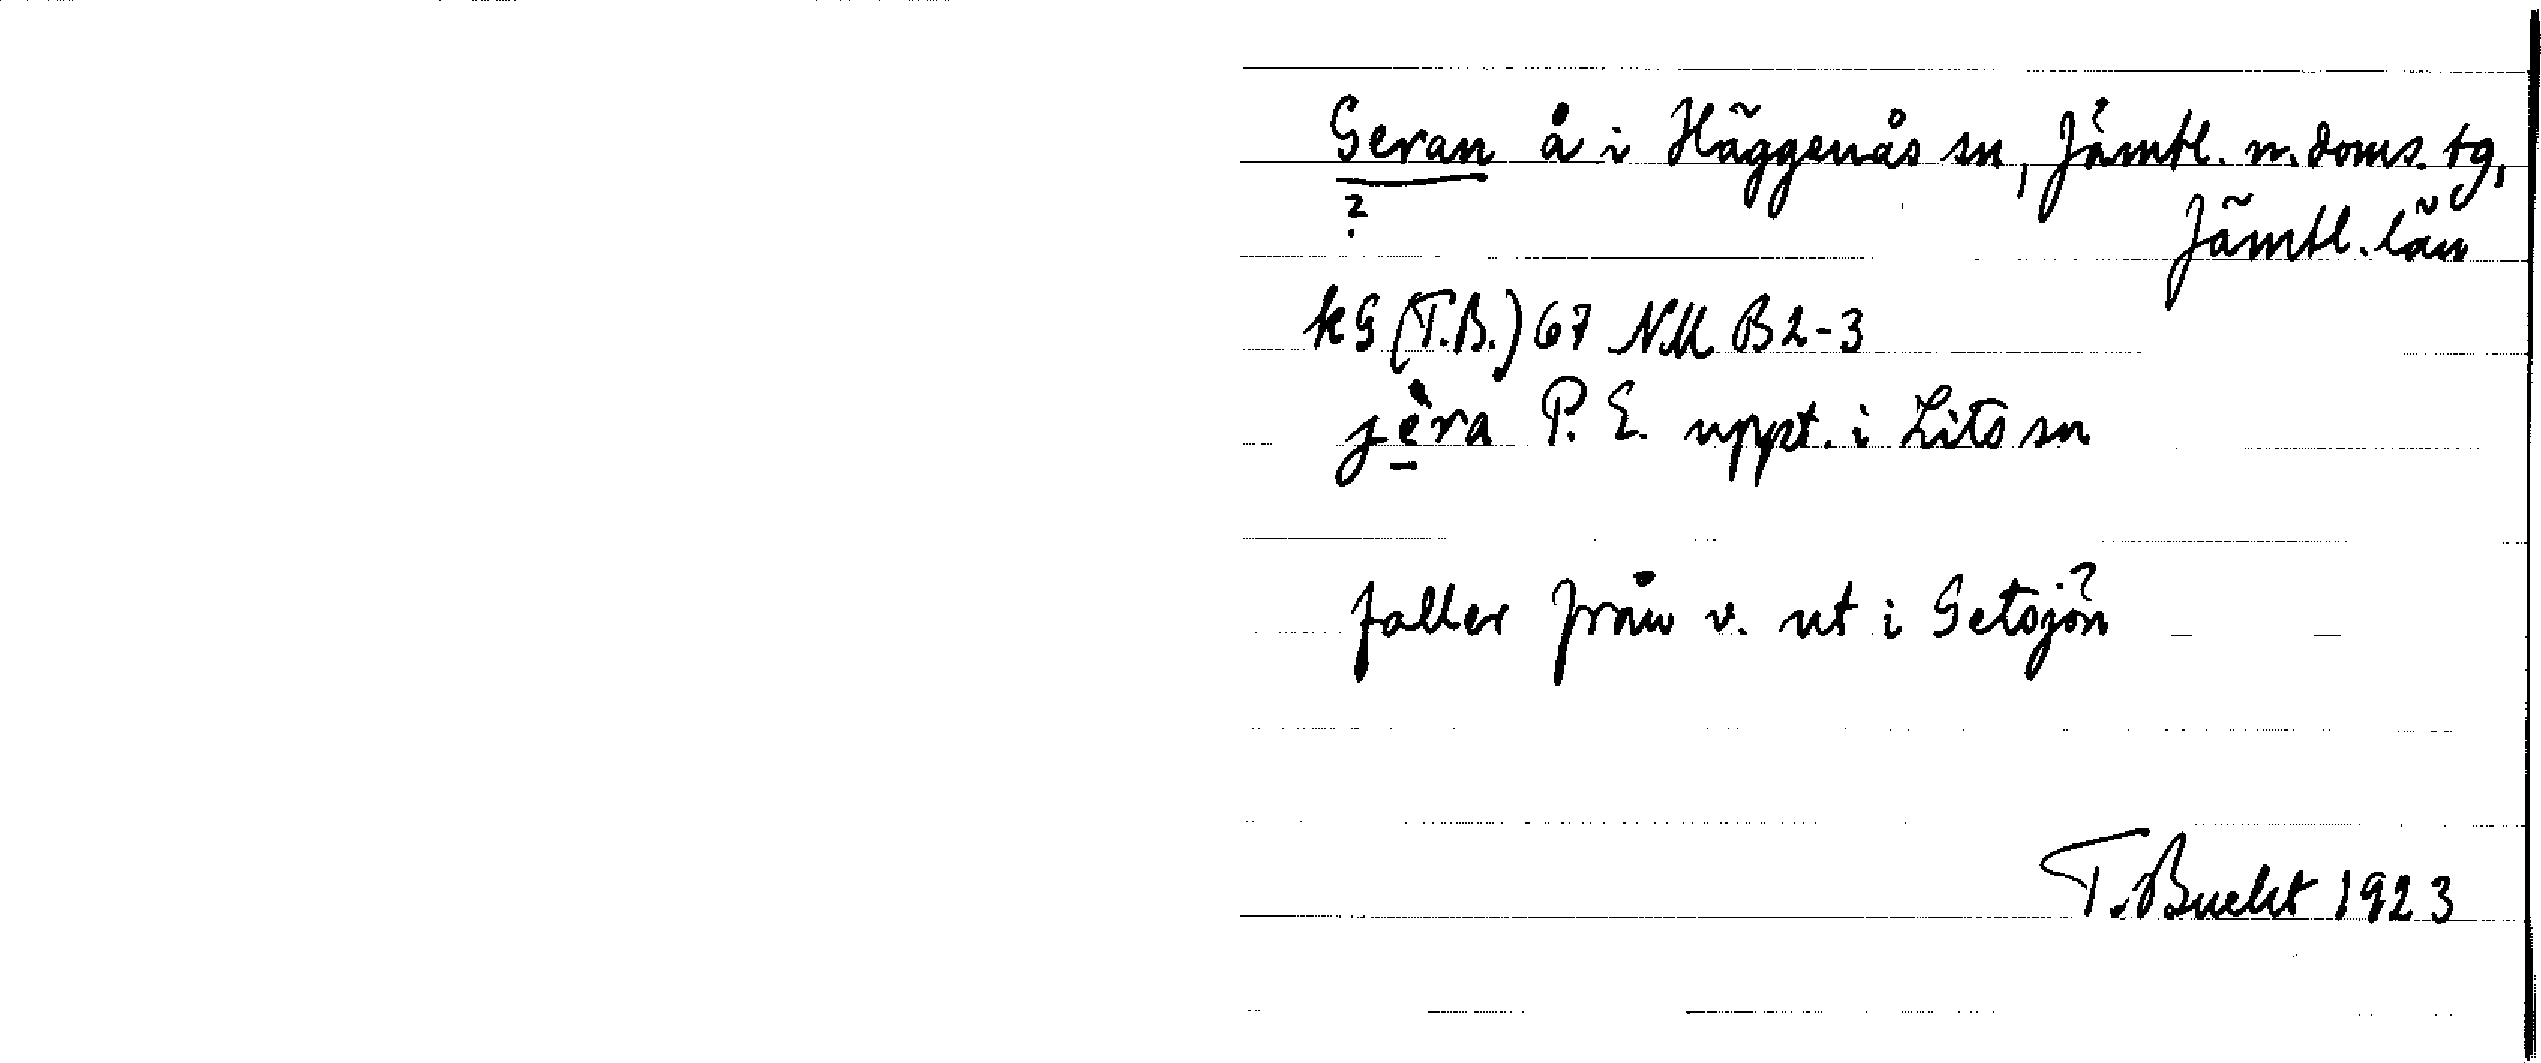 Geran å i Häggenås sn, Jämtl. n. doms. tg,
?
Jämtl. län
kG (T.B.) 67 NM B2-3
jèra P. E. uppt. i Lits sn
faller från v. ut i Getsjön?
T. Bucht 1923